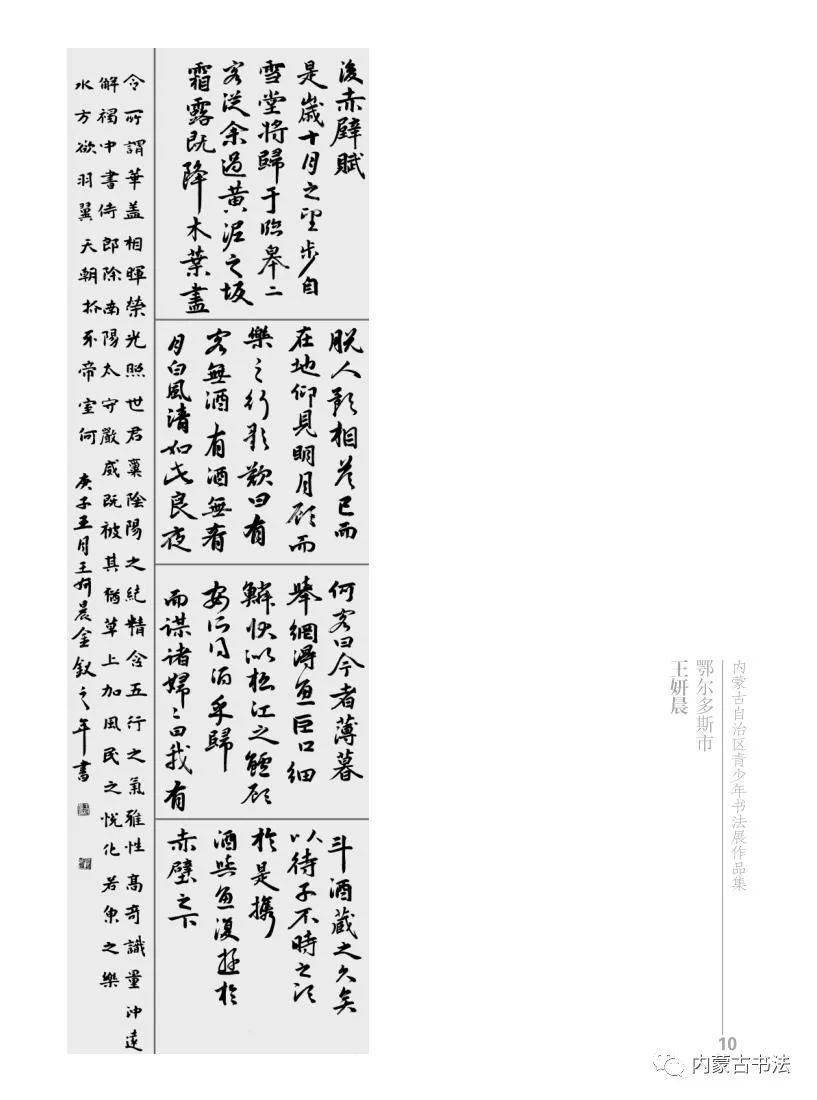 後赤壁賦
是歲十月之望步自
雪堂將歸于臨皋二
客從余過黃泥之坂
霜露既降木葉盡
脫人影相答已而
在地仰見明月顧而
樂之行歌歎曰有
客無酒有酒無肴
月白風清如此良夜
何客曰今者薄暮
舉網得魚巨口細
鱗狀似松江之鱸顧
安所得酒乎歸
而謀諸婦〻曰我有
斗酒藏之久矣
以待子不時之須
於是攜
酒與魚復遊於
赤壁之下
令所謂華盖相暉榮光照世君稟陰陽之純精含五行之氣雅性高奇識量沖遠
解褐中書侍郎除南陽太守嚴威既被其猶草上加風民之悅化若魚之樂
水方欲羽翼天朝抓不帝室何
庚子五月王妍晨金釵之年書
内蒙古自治区青少年书法展作品集
鄂尔多斯市
王妍晨
10
内蒙古书法